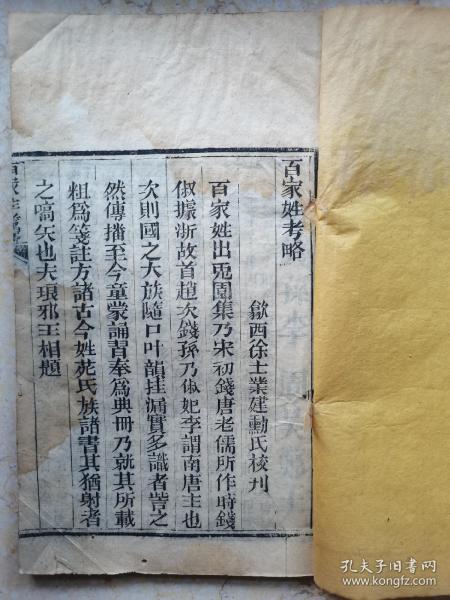 百家姓考略
歙西徐士業建勳氏校刋
百家姓出兎園集乃宋初錢唐老儒所作時錢
俶據浙故首趙次錢孫乃俶妃李謂南唐主也
次則國之大族隨口叶韻挂漏實多識者訾之
然傳播至今童蒙誦習奉爲典冊乃就其所載
粗爲箋註方諸古今姓苑氏族諸書其猶射者
之嚆矢也夫琅邪王相題
百家姓考略
孔夫子旧书网
www.kongfz.com